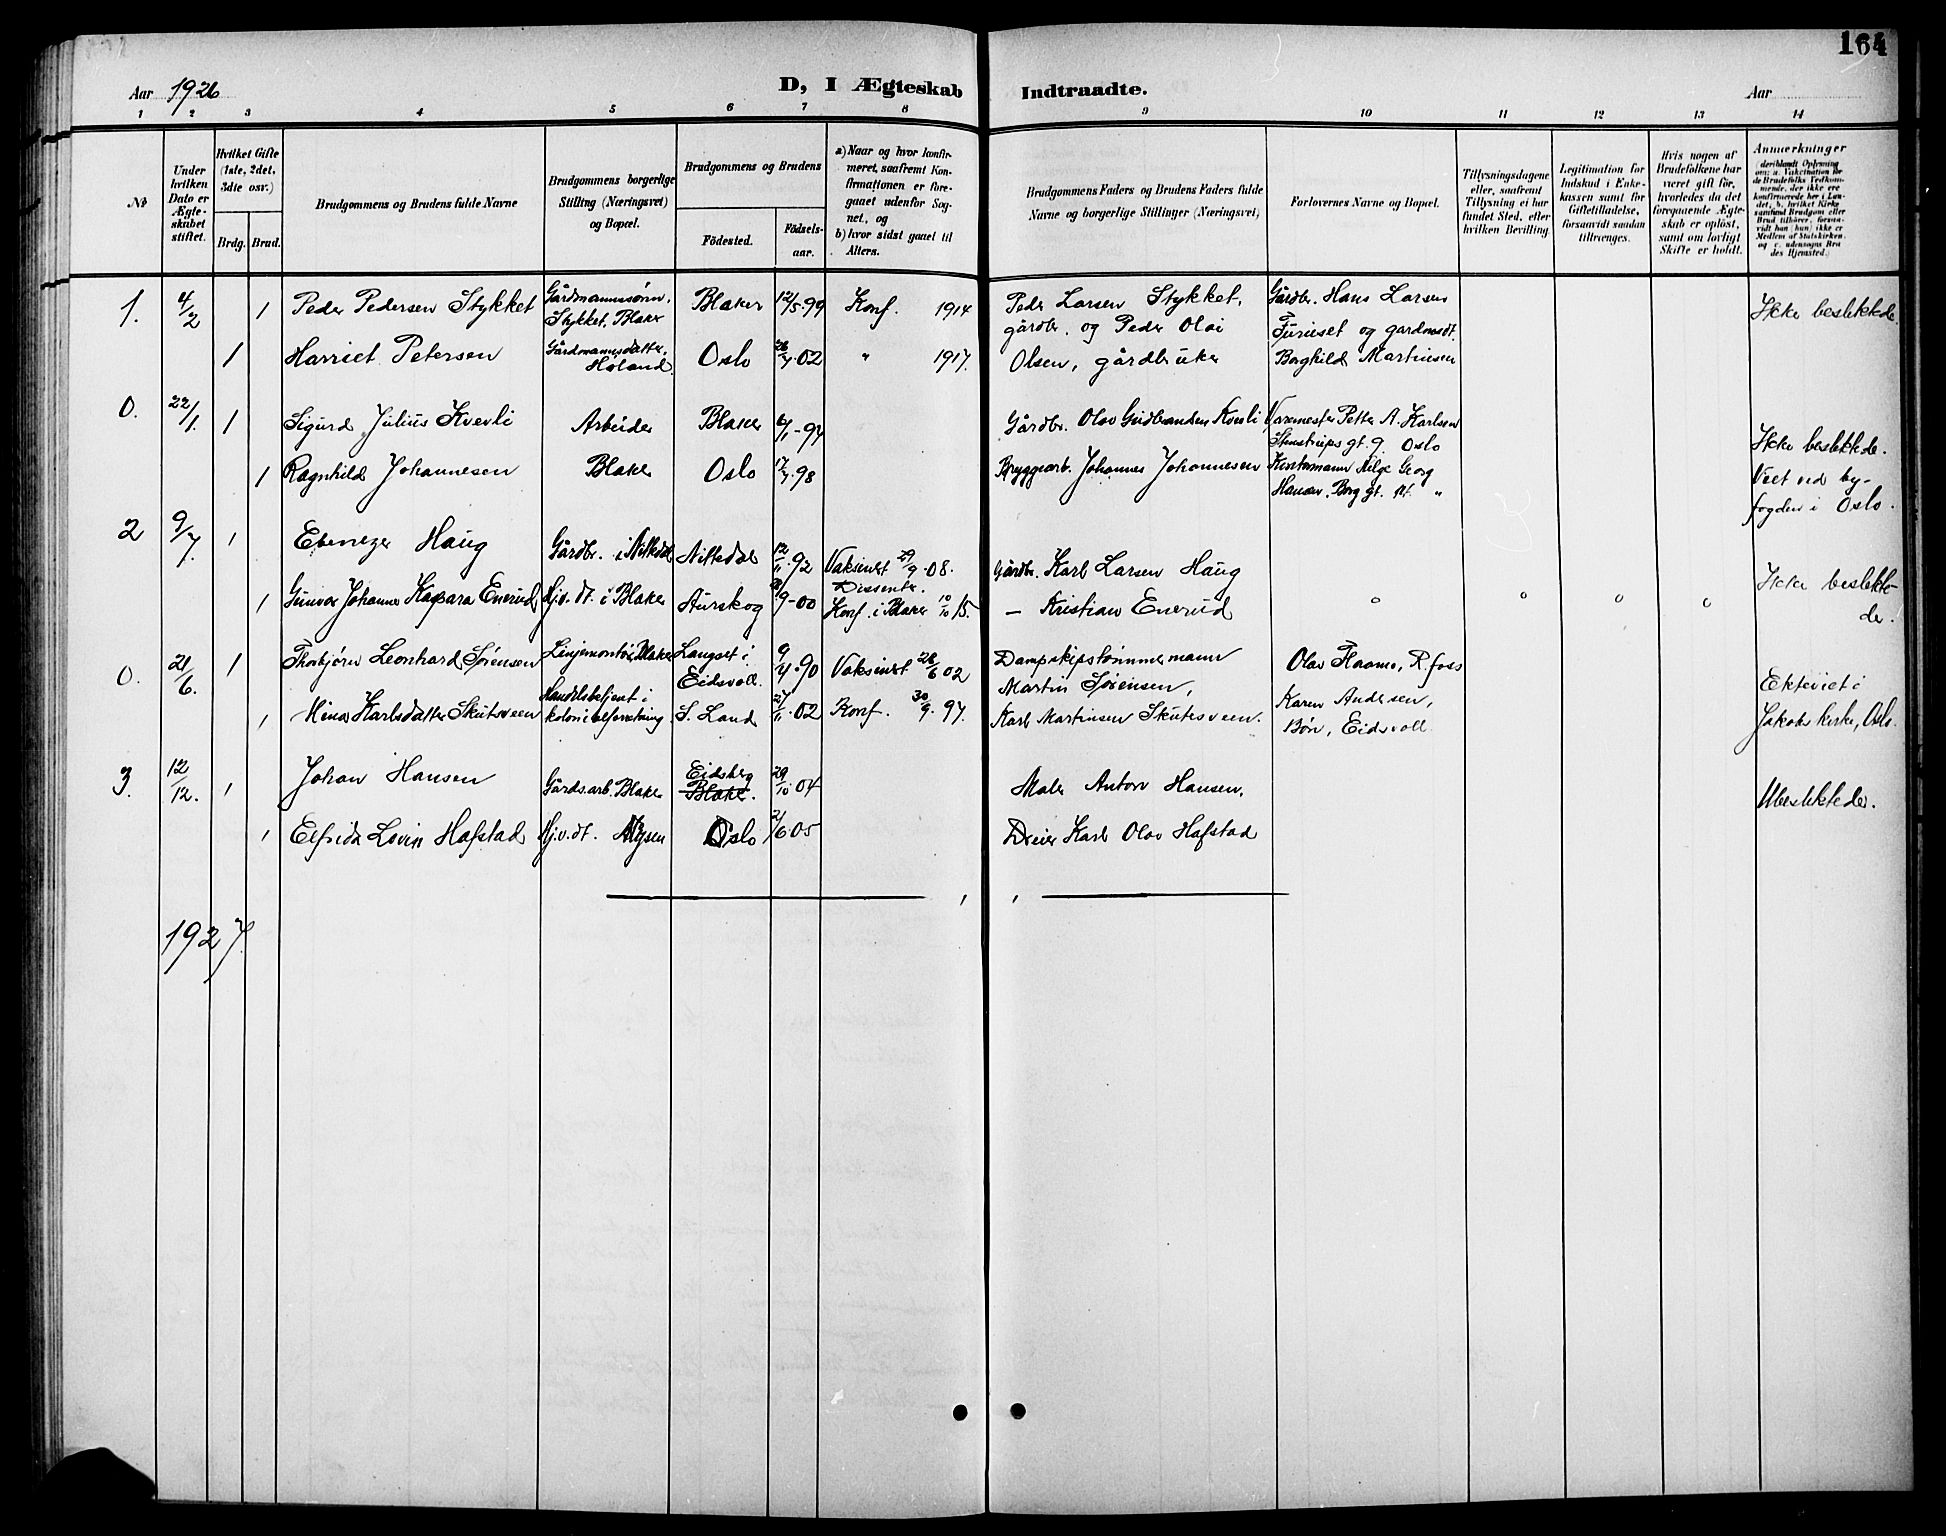 164
Aar 1926
D, I Ægteskab Indtraadte.
Aar
1 2 3 4 5 6 7 8 9 10 11 12 13 14
No
Under hvilken Dato er Ægteskabet stiftet.
Hvilket Gifte (1ste, 2det, 3die osv.)
Brdg. Brud.
Brudgommens og Brudens fulde Navne
Brudgommens borgerlige Stilling (Næringsvei) og Bopæl.
Brudgommens og Brudens
Födested.
Födselsaar.
a) Naar og hvor konfirmeret, saafremt Konfirmationen er foregaaet udenfor Sognet, og
b) hvor sidst gaaet til Alters.
Brudgommens Faders og Brudens Faders fulde Navne og borgerlige Stillinger (Næringsvei)
Forlovernes Navne og Bopæl.
Tillysningsdagene eller, saafremt Tillysning ei har fundet Sted, efter hvilken Bevilling.
Legitimation for Indskud i Enkekassen samt for Giftetilladelse, forsaavidt saadan tiltrænges.
Hvis nogen af Brudefolkene har været gift för, hvorledes da det foregaaende Ægteskab er oplöst, samt om lovligt Skifte er holdt.
Anmerkninger
(deriblandt Oplysning om: a. Vakcination for de Brudefolks Vedkommende, der ikke ere konfirmerede her i Landet, b. hvilket Kirkesamfund Brudgom eller Brud tilhører, forsaavidt han (hun) ikke er Medlem af Statskirken, og c. udensogns Brudes Hjemsted.)
1. 4/2 1 Peder Pedersen Stykket Gårdmannssønn, Stykket, Blaker Blaker 12/5-99 Konf. 1914 Peder Larsen Stykket, gårdbr. og Peder Olai Gårdbr. Hans Larsen Furuset og gardmsdt. Ikke beslektede.
1 Harriet Petersen Gårdmannsdatter, Høland Oslo 26/7-02 " 1917. Olsen, gårdbruker Borghild Martinsen
0. 22/1. 1 Sigurd Julius Kvevli Arbeider Blaker 6/11-97 Gårdbr. Olav Gudbrandsen Kvevli Petter A. Karlsen Stenstrups gt. 9. Oslo Ikke beslektede.
1 Ragnhild Johannesen Blaker Oslo 17/7-98 Bryggearb. Johannes Johannesen Helge Georg Hansen, Borg gt. " Viet ved byfogden i Oslo.
2 9/7. 1 Ebenezer Haug Gårdbr. i Nittedal Nittedal 12/11-92 Vaksinert 29/9-08. Dissenter. Gårdbr. Karl Larsen Haug Ikke beslektede.
1 Gunvor Johanne Kaspara Enerud Hjv. dt. i Blaker Aurskog 9-00 Konf. i Blaker 10/10 15. — Kristian Enerud
0. 21/6. 1 Thorbjørn Leonhard Sørensen Linjemontør, Blaker Langset i Eidsvoll. 9/4-90 Vaksinert 28/6 02 Dampskipstømmermann Martin Sørensen, Olav Haamo, R.foss Ektéviet i
1 Mina Karlsdatter Skutsveen Handelsbetjent i S. Land 27/11-02 Konf. 30/9-97. Karl Martinsen Skutesveen. Karen Andersen, Bøn, Eidsvoll Jakobs kirke, Oslo.
3. 12/12. 1 Johan Hansen Gårdsarb. Blaker Eidsberg Blaker. 29/10-04 Maler Anton Hansen. Ubeslektede.
1 Elfrida Hafstad Hjv. dt. Mysen Oslo 2/6 05 Dreier Karl Olav Hafstad
1927.